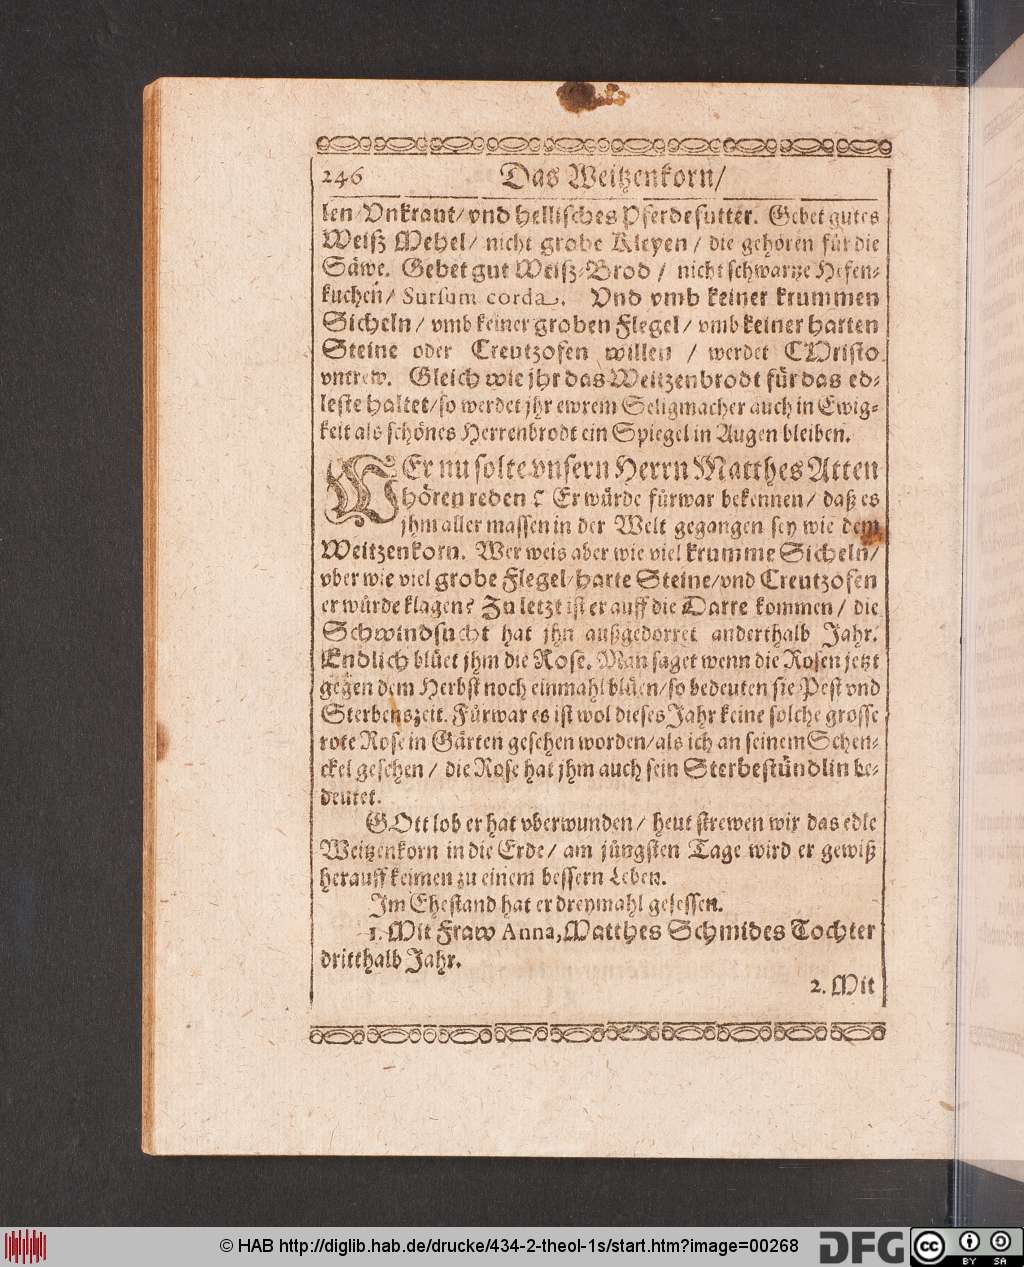 246 Das Weitzenkorn/
len/Vnkraut/vnd hellisches Pferdefutter. Gebet gutes
Weiß Mehel/ nicht grobe Kleyen/ die gehören für die
Säwe. Gebet gut Weiß-Brod/ nicht schwartze Hefen-
kuchen/ Sursum corda. Vnd vmb keiner krummen
Sicheln/ vmb keiner groben Flegel/ vmb keiner harten
Steine oder Creutzofen willen/ werdet CHristo
vntrew. Gleich wie jhr das Weitzenbrodt für das ed-
leste haltet/so werdet jhr ewrem Seligmacher auch in Ewig-
keit als schönes Herrenbrodt ein Spiegel in Augen bleiben.
WEr nu solte vnsern Herrn Matthes Atten
hören reden? Er würde fürwar bekennen/ daß es
jhm aller massen in der Welt gegangen sey wie dem
Weitzenkorn. Wer weis aber wie viel krumme Sicheln/
vber wie viel grobe Flegel/harte Steine/vnd Creutzofen
er würde klagen? Zu letzt ist er auff die Darre kommen/ die
Schwindsucht hat jhn außgedorret anderthalb Jahr.
Endlich blüet jhm die Rose. Man saget wenn die Rosen jetzt
gegen dem Herbst noch einmahl blüen/so bedeuten sie Pest vnd
Sterbenszeit. Fürwar es ist wol dieses Jahr keine solche grosse
rote Rose in Gärten gesehen worden/als ich an seinem Schen-
ckel gesehen/ die Rose hat jhm auch sein Sterbestündlin be-
deutet.
GOtt lob er hat vberwunden/ heut strewen wir das edle
Weitzenkorn in die Erde/ am jüngsten Tage wird er gewiß
herauff keimen zu einem bessern Leben.
Im Ehestand hat er dreymahl gesessen.
1. Mit Fraw Anna, Matthes Schmides Tochter
dritthalb Jahr.
2. Mit
© HAB http://diglib.hab.de/drucke/434-2-theol-1s/start.htm?image=00268
DFG cc BY SA